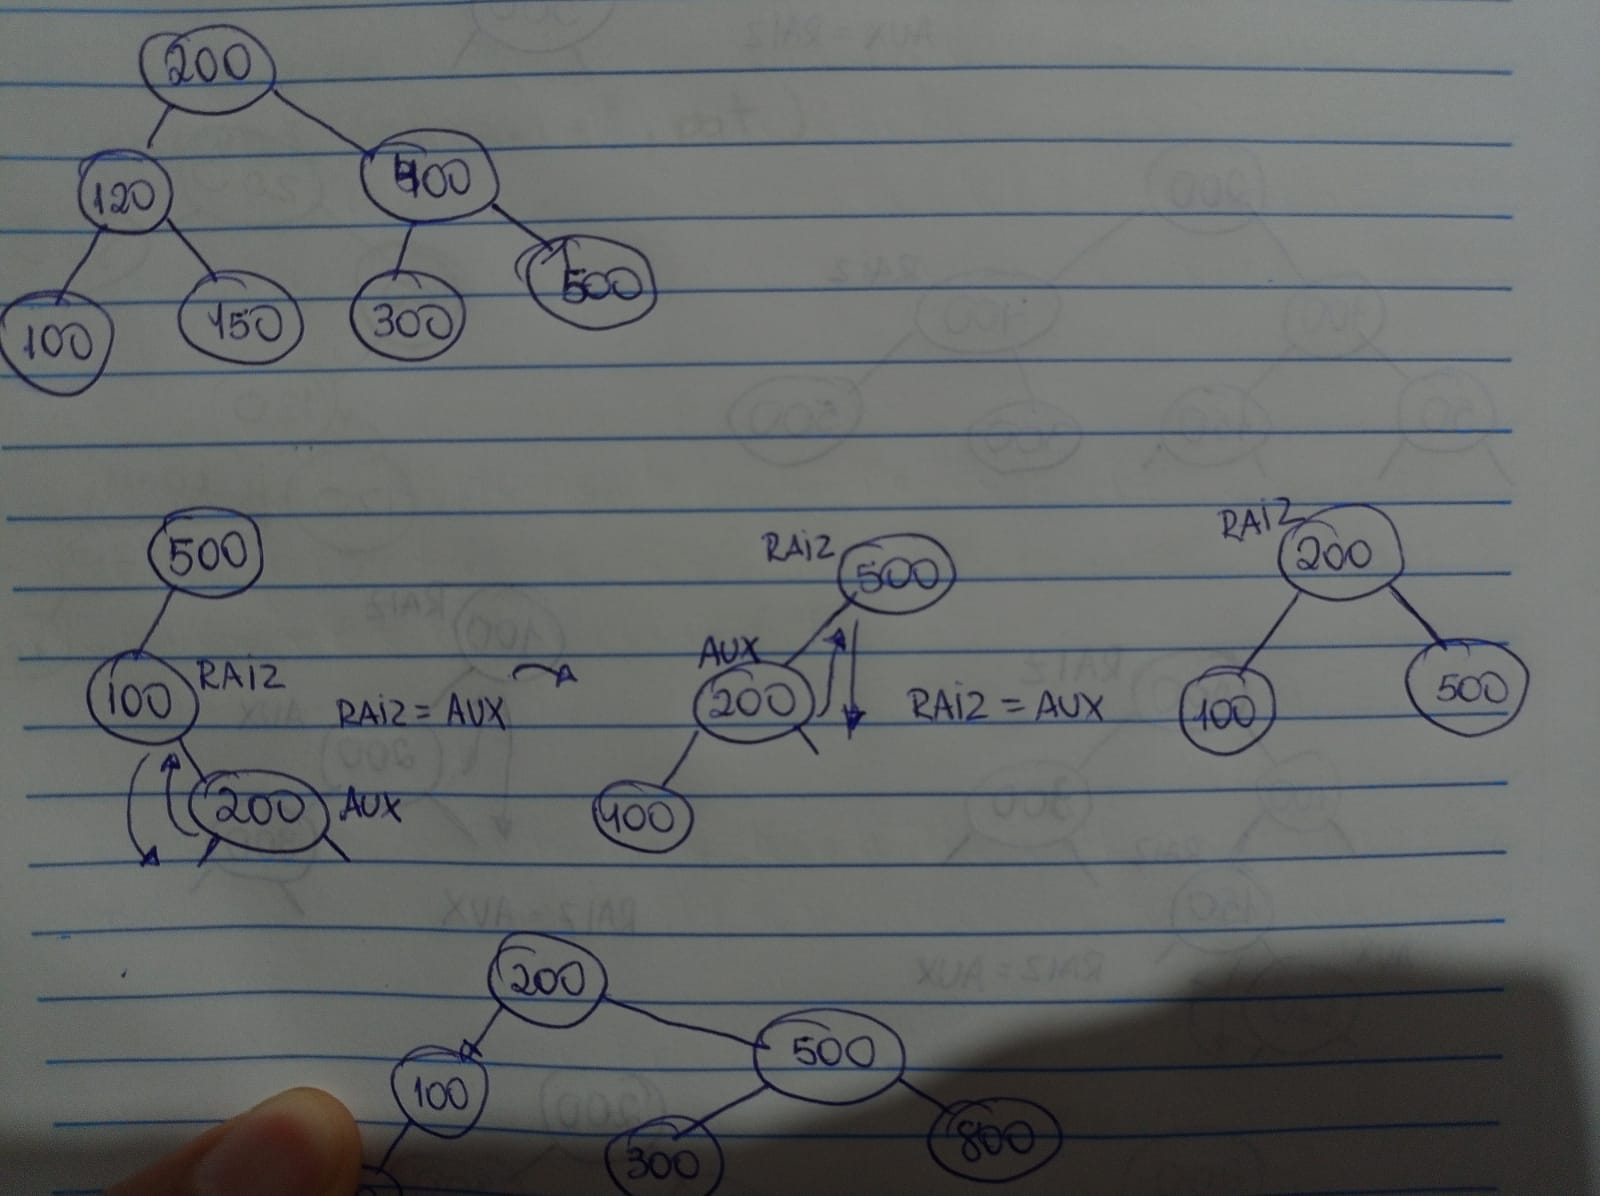 200
120 400
100 150 300 500
500
100 RAIZ
RAIZ = AUX
200 AUX
RAIZ 500
AUX
200
100
RAIZ = AUX
RAIZ 200
100 500
200
100 500
300 800